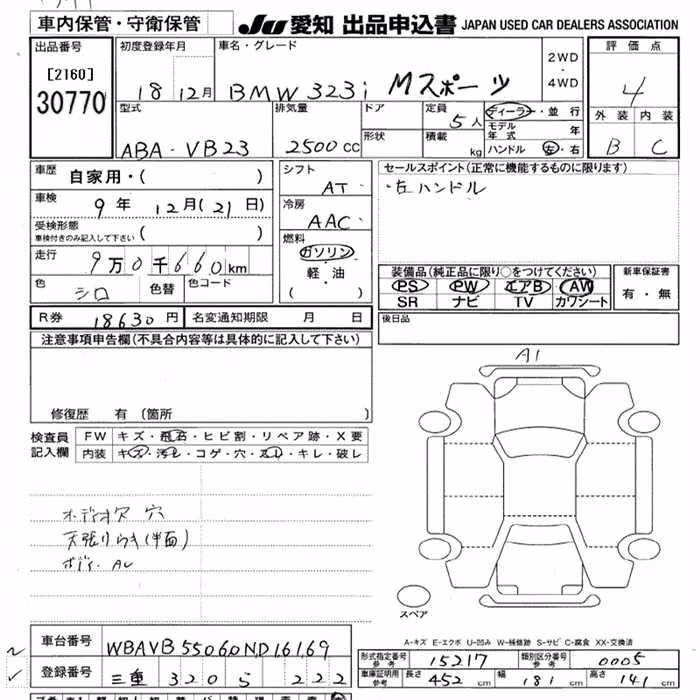 車内保管・守衛保管 JU 愛知 出品申込書 JAPAN USED CAR DEALERS ASSOCIATION
出品番号 初度登録年月 車名・グレード 2WD・4WD 評価点
[2160] 30770 18 12月 BMW 323i Mスポーツ 4
型式 排気量 ドア 定員 ディーラー・並行 外装 内装
ABA-VB23 2500cc 形状 5人 積載 kg モデル年式 年 B C
ハンドル 左・右
車歴 自家用・( ) シフト セールスポイント(正常に機能するものに限ります)
車検 9年 12月(21日) AT ・左ハンドル
受検形態 車検付きのみ記入して下さい ( ) 冷房 AAC
走行 9万0千660km 燃料 ガソリン 軽・油 ( ) 装備品(純正品に限り○をつけてください) 新車保証書
色 シロ 色替 色コード PS PW エアB AW 有・無
SR ナビ TV カワシート
R券 18630円 名変通知期限 月 日 後日品
注意事項申告欄(不具合内容等は具体的に記入して下さい)
A1
修復歴 有 (箇所 )
検査員記入欄 FW キズ・飛石・ヒビ割・リペア跡・X要
内装 キズ・汚レ・コゲ・穴・スレ・キレ・破レ
オーディオ穴 穴
天張りうき(半面)
スペア
A-キズ E-エクボ U-凹み W-補修跡 S-サビ C-腐食 XX-交換済
車台番号 WBAVB55060ND16169 形式指定番号 参考 15217 類別区分番号 参考 0005
登録番号 三重 320 ら 222 車庫証明用 参考 長さ 452cm 幅 181cm 高さ 141cm